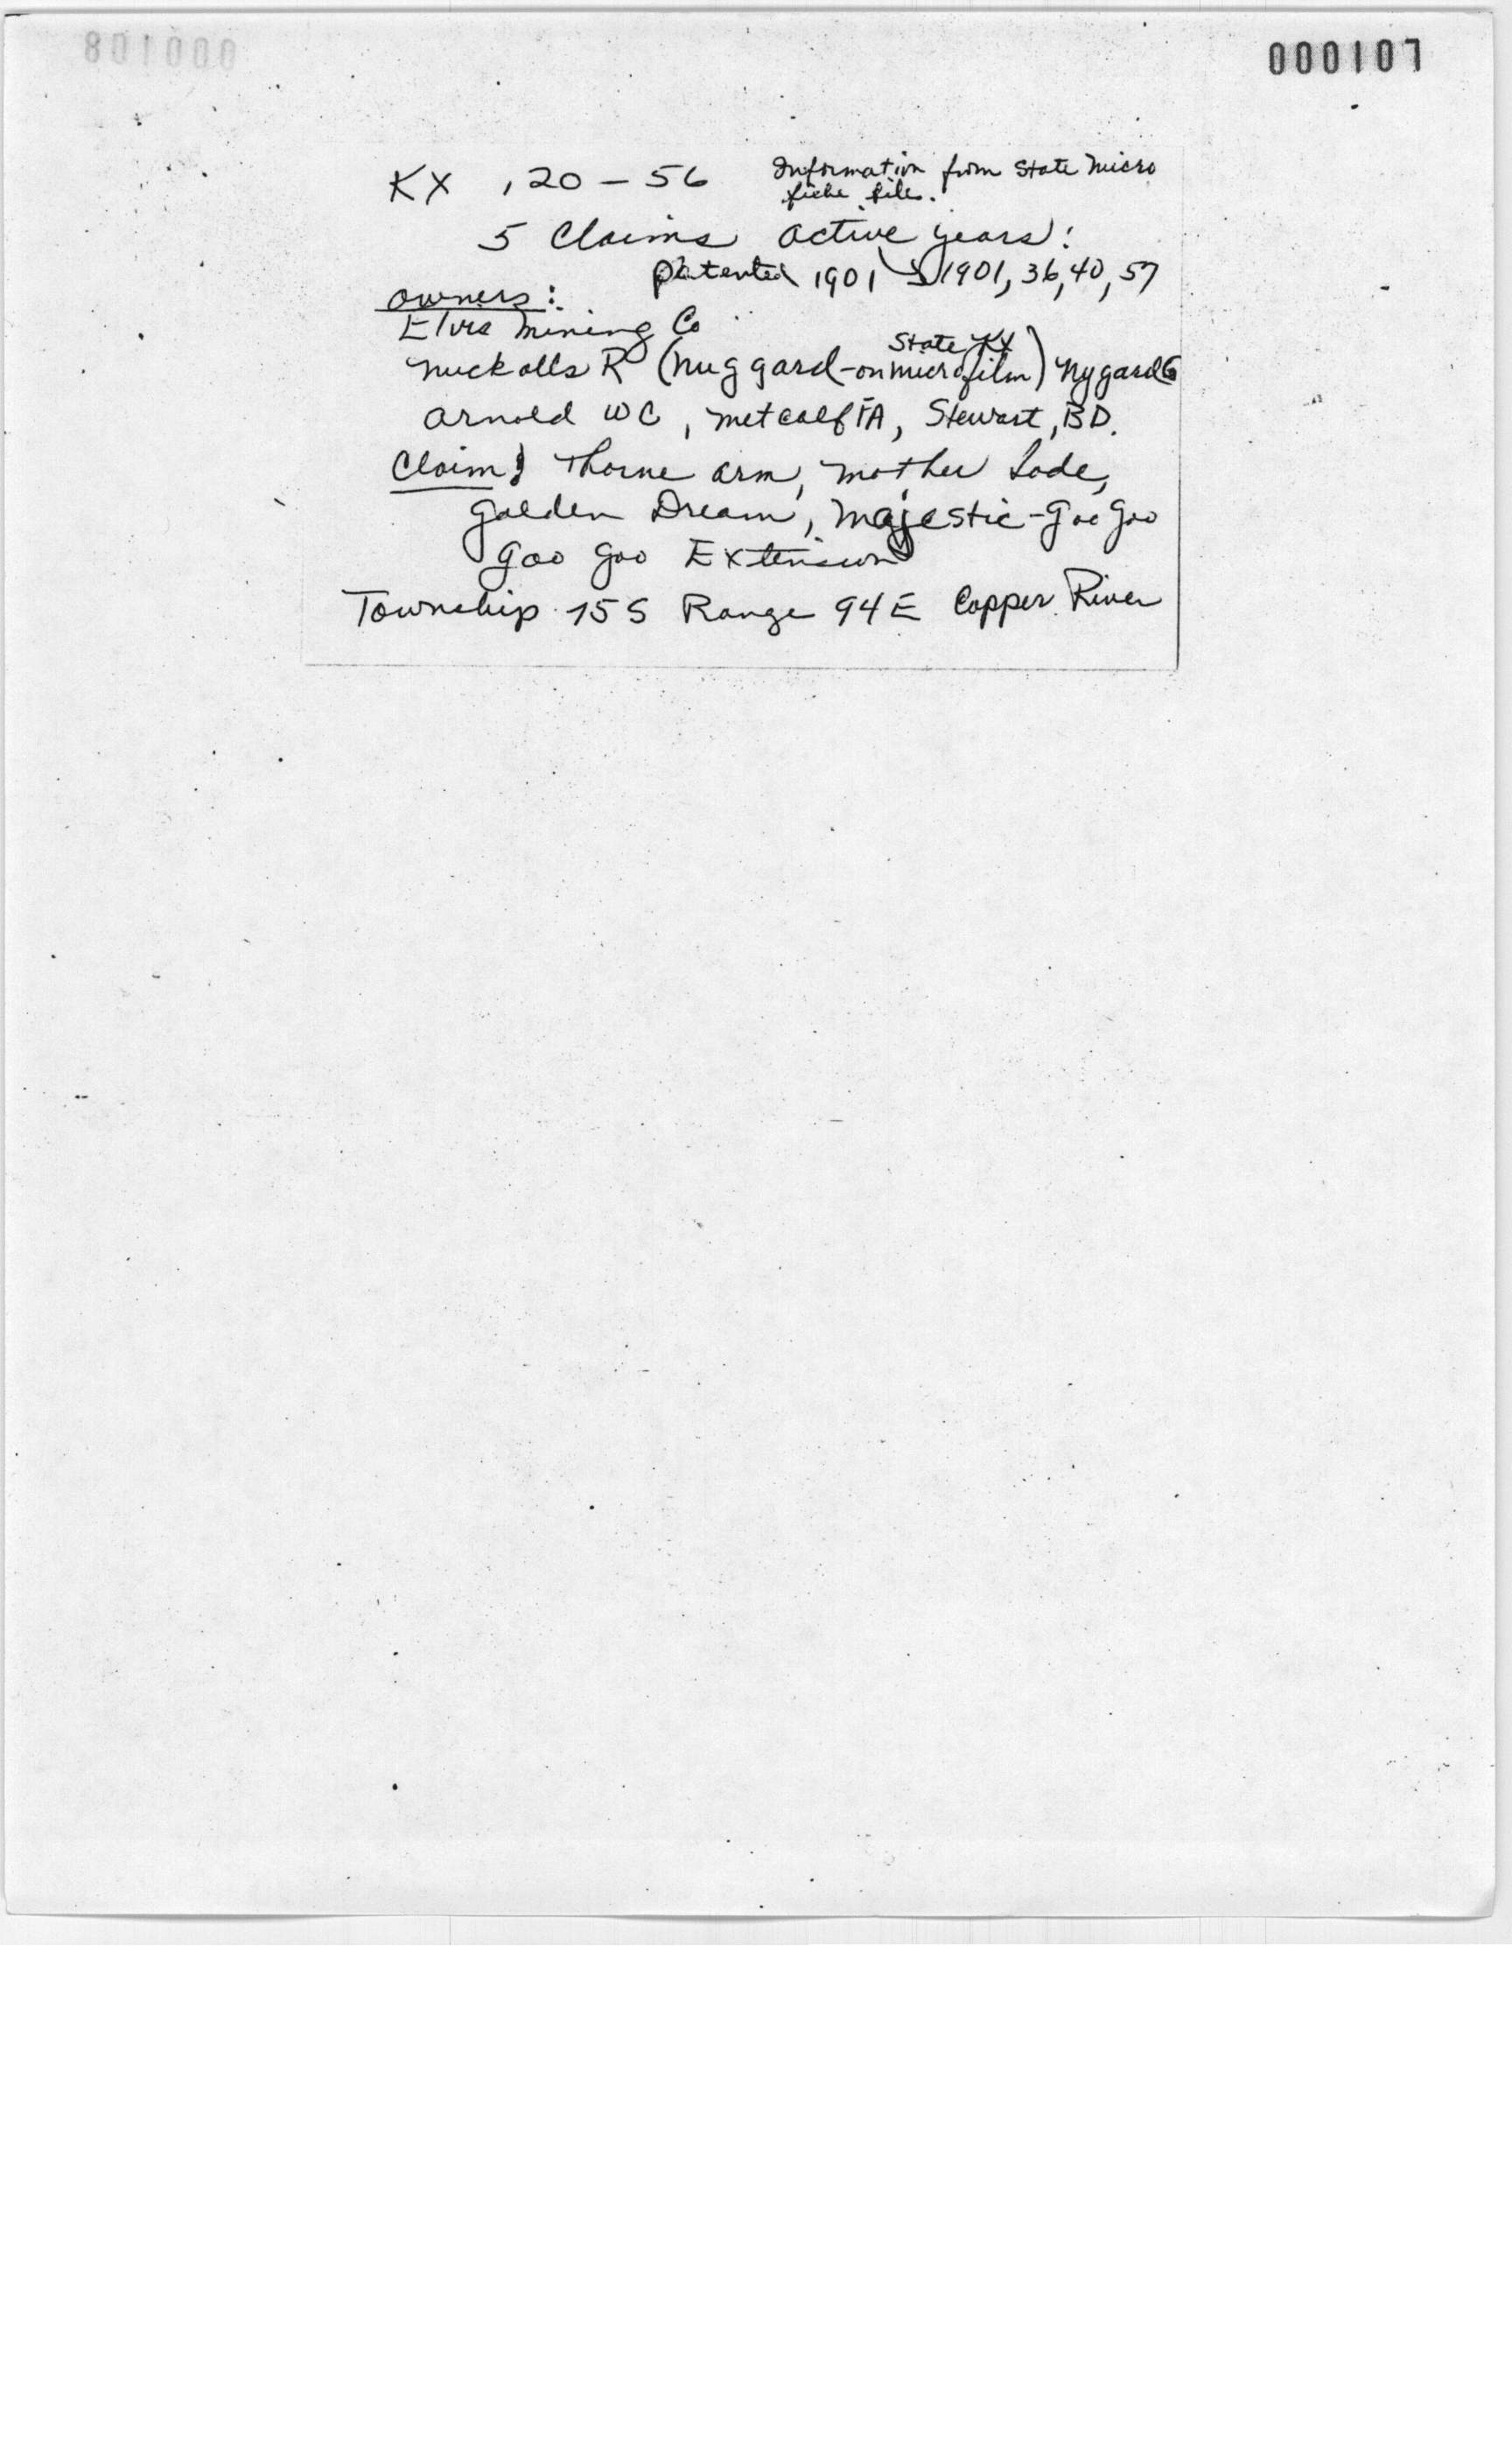 000107
000108
KX , 20 - 56 Information from State Micro
fiche file.
5 Claims active years:
patented 1901 1901, 36, 40, 57
owners:
Mining Co
Nuckolls R (Nuggard - on microfilm) Nygard G
State KX
Arnold WC, Metcalf FA, Stewart, BD.
Claim: Thorne Arm, Mother Lode,
Golden Dream, Majestic - Goo Goo
Goo Goo Extension
Township 75 S Range 94 E Copper River